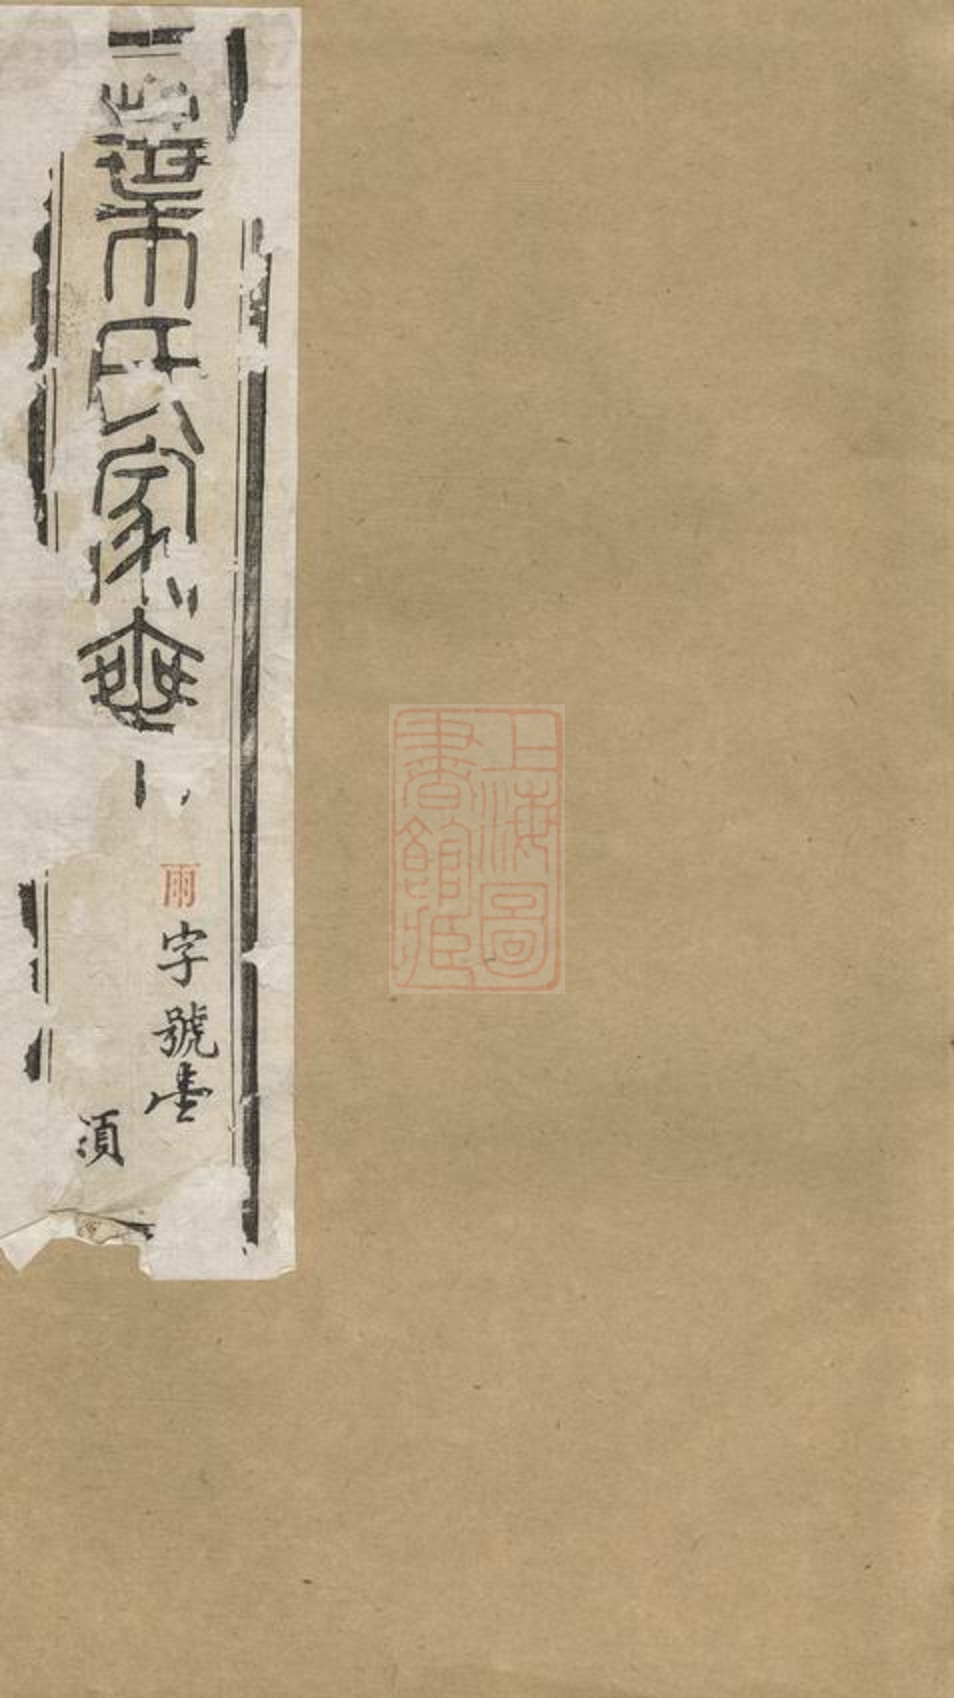 葉氏家乘
雨字號
須
上海圖
書館藏